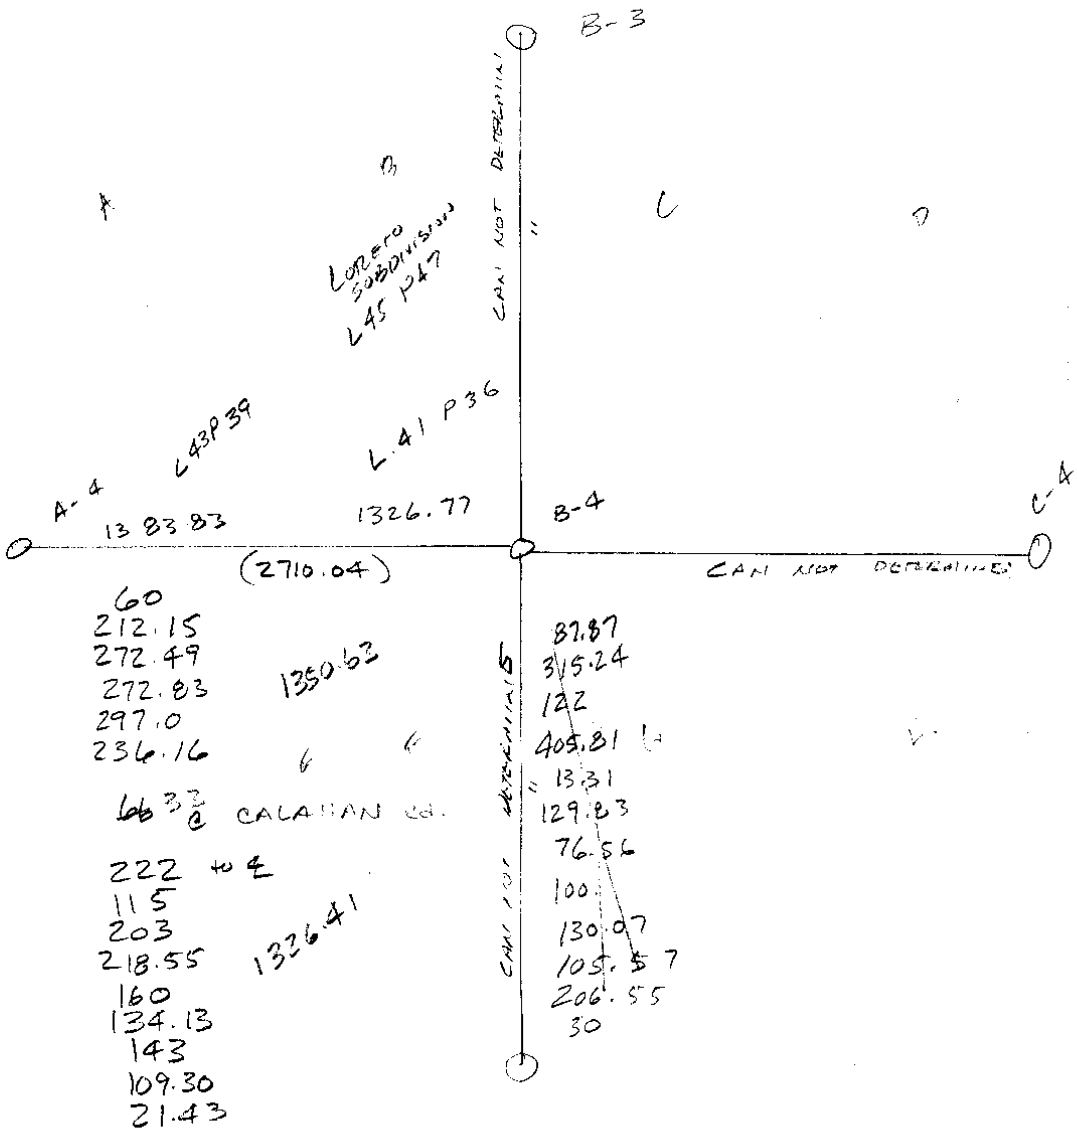 B-3
CAN NOT DETERMINE
"
A
B
C
D
LORETO
SUBDIVISION
L45 P47
L43P39
L.41 P36
A-4
1383.83
1326.77
B-4
C-4
(2710.04)
CAN NOT DETERMINE
60
212.15
272.49
272.83
297.0
236.16
1350.63
CALAHAN Rd.
222 to ℄
115
203
218.55
160
134.13
143
109.30
21.43
1326.41
CAN NOT DETERMINE
"
87.87
315.24
122
405.81
13.31
129.83
76.56
100.
130.07
105.57
206.55
30